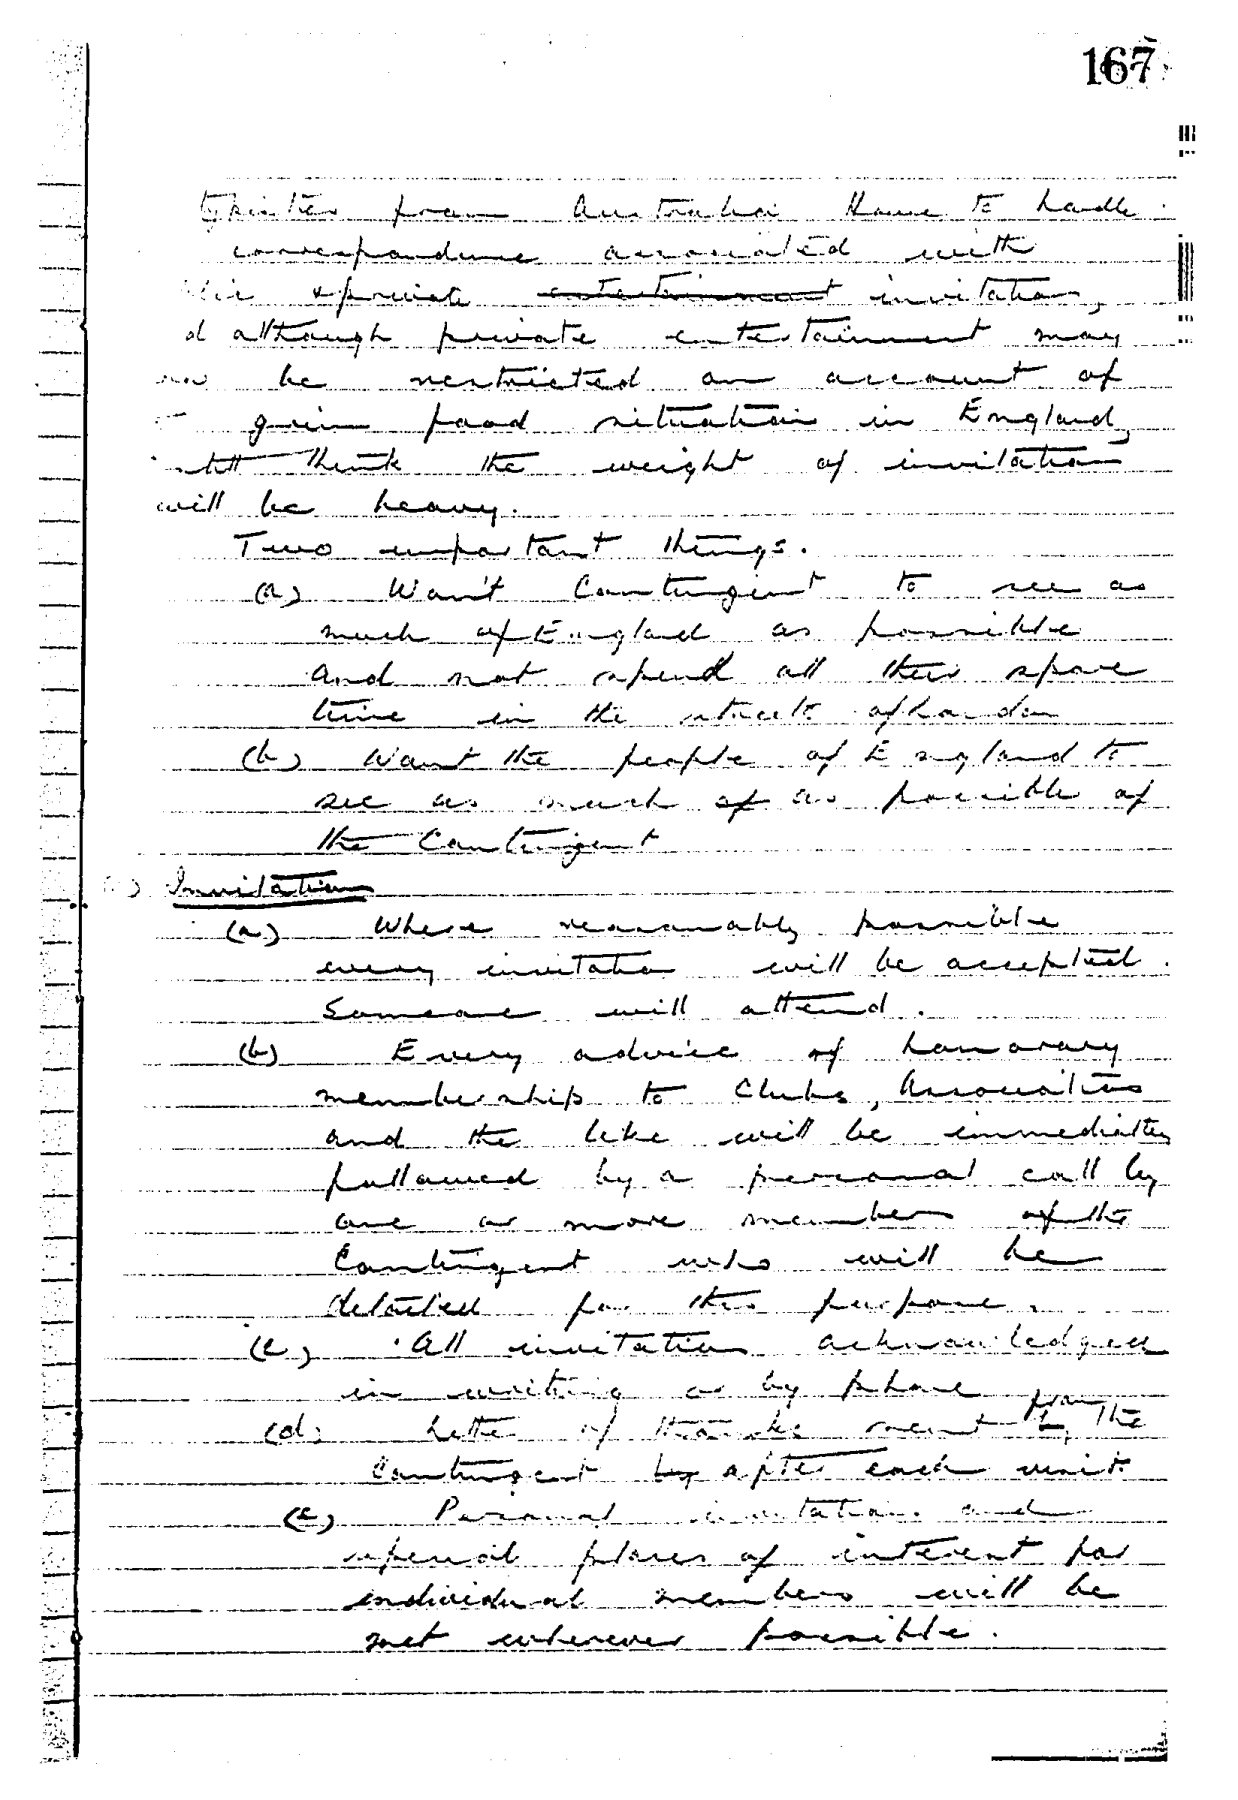 167
typistes from Australia House to handle
correspondence associated with
& private entertainment invitations,
although private entertainment may
be restricted on account of
grim food situation in England,
still think the weight of invitations
will be heavy.
Two important things.
(a) Want Contingent to see as
much of England as possible
and not spend all their spare
time in the streets of London
(b) Want the people of England to
see as much of as possible of
the Contingent
Invitations
(a) Where reasonably possible
every invitation will be accepted.
Someone will attend.
(b) Every advice of honorary
membership to Clubs, Associations
and the like will be immediately
followed by a personal call by
one or more members of the
Contingent who will be
detailed for this purpose.
(c) All invitations acknowledged
in writing or by phone
from
(d) Letter of thanks sent by the
Contingent by after each visit
(e) Personal invitations and
special places of interest for
individual members will be
met wherever possible.